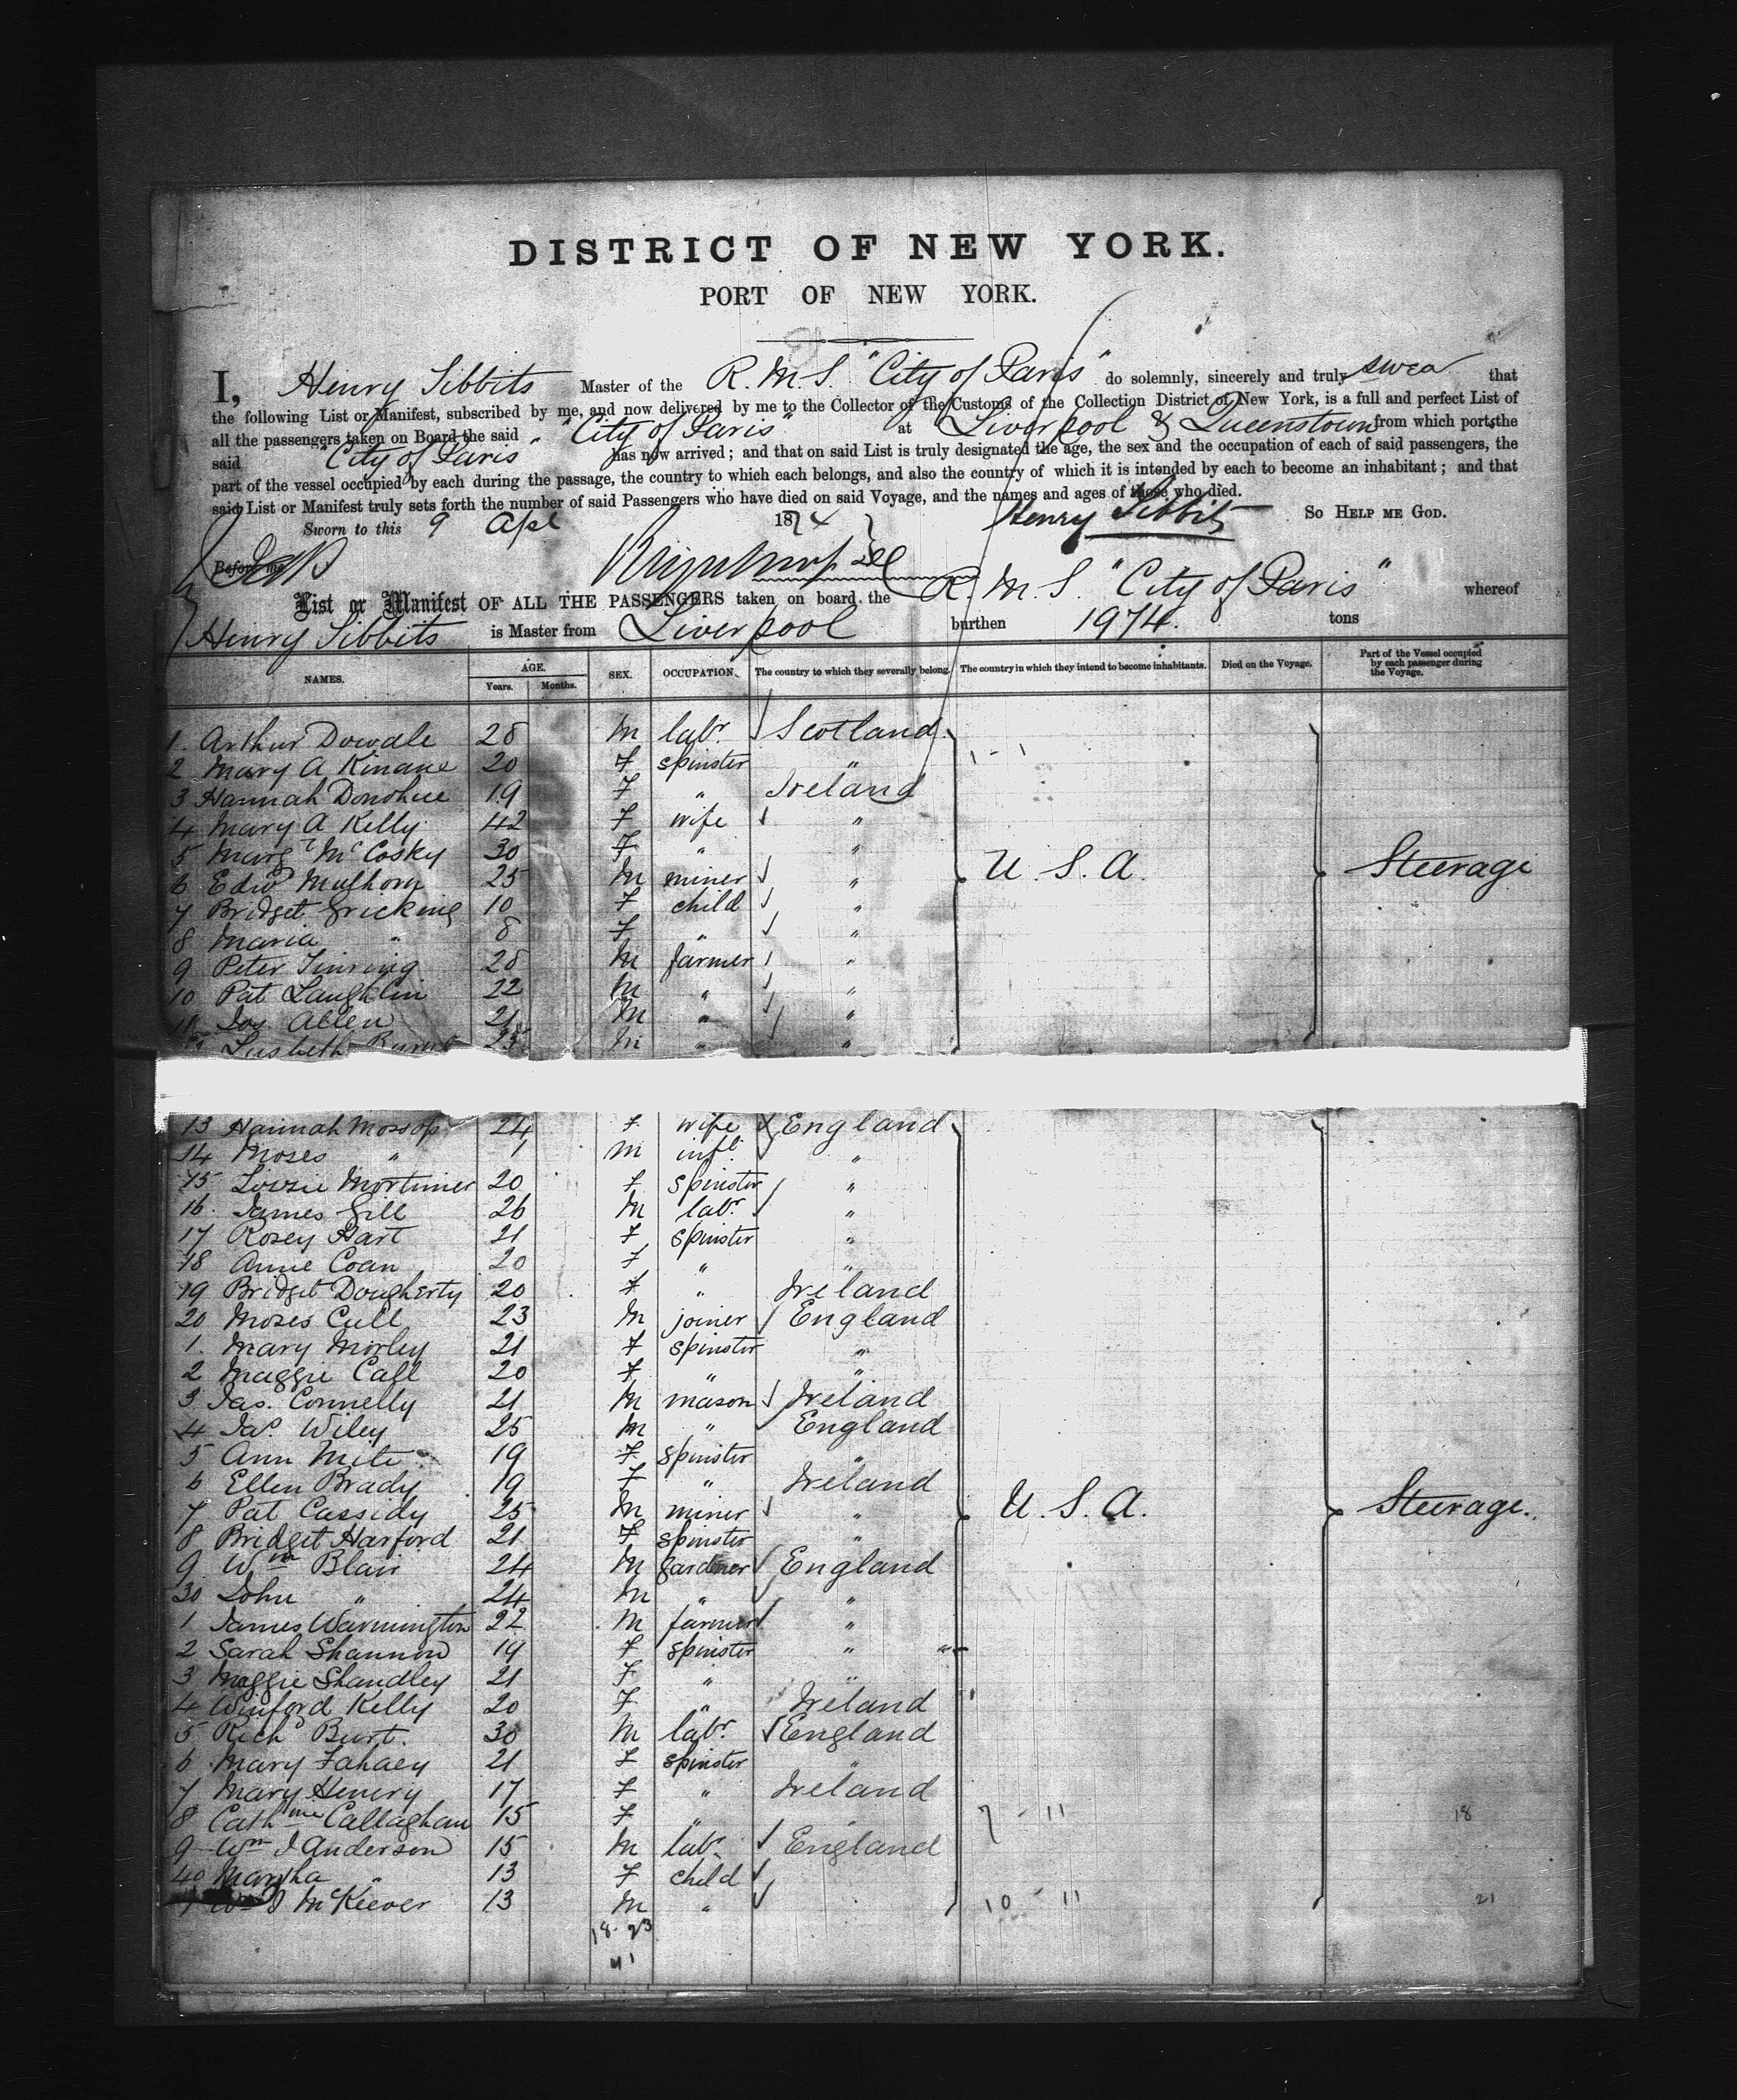 DISTRICT OF NEW YORK.
PORT OF NEW YORK.
I, Henry Tibbits Master of the R.M.S. "City of Paris" do solemnly, sincerely and truly swea that
the following List or Manifest, subscribed by me, and now delivered by me to the Collector of the Customs of the Collection District of New York, is a full and perfect List of
all the passengers taken on Board the said "City of Paris" at Liverpool & Queenstown from which ports the
said "City of Paris" has now arrived; and that on said List is truly designated the age, the sex and the occupation of each of said passengers, the
part of the vessel occupied by each during the passage, the country to which each belongs, and also the country of which it is intended by each to become an inhabitant; and that
said List or Manifest truly sets forth the number of said Passengers who have died on said Voyage, and the names and ages of those who died.
Sworn to this 9 Apl 1874 Henry Tibbits SO HELP ME GOD.
Before me
List or Manifest OF ALL THE PASSENGERS taken on board the R.M.S. "City of Paris" whereof
Henry Tibbits is Master from Liverpool burthen 1974. tons
NAMES. AGE. Years. Months. SEX. OCCUPATION. The country to which they severally belong. The country in which they intend to become inhabitants. Died on the Voyage. Part of the Vessel occupied by each passenger during the Voyage.
1. Arthur Dowdle 28 M labr. Scotland
2 Mary A Kinane 20 F spinster "
3 Hannah Donohue 19 F " Ireland
4 Mary A Kelly 42 F wife "
5 Margt McCosky 30 F " "
6 Edwd Mulhorn 25 M miner " U.S.A. Steerage
7 Bridget 10 F child "
8 Maria " 8 F " "
9 Peter 28 M farmer "
10 Pat Laughlin 22 M " "
11 Jos Allen 21 M " "
12 25 M " "
13 Hannah Mossop 24 F wife England
14 Moses " 1 M inft "
15 Lizzie Mortimer 20 F spinster "
16. James Gill 26 M labr. "
17 Rosey Hart 21 F spinster "
18 Anne Coan 20 F " "
19 Bridget Dougherty 20 F " Ireland
20 Moses Cull 23 M joiner England
1. Mary Morley 21 F spinster "
2 Maggie Call 20 F " "
3 Jas. Connelly 21 M mason Ireland
4 Jas. Wiley 25 M " England
5 Ann Mite 19 F spinster "
6 Ellen Brady 19 F " Ireland
7 Pat Cassidy 25 M miner " U.S.A. Steerage.
8 Bridget Harford 21 F spinster "
9 Wm Blair 24 M gardener England
30 John " 24 M " "
1 James Warmington 22 M farmer "
2 Sarah Shannon 19 F spinster "
3 Maggie Shandley 21 F " "
4 Winford Kelly 20 F " Ireland
5 Richd Burt. 30 M labr. England
6 Mary Fahaey 21 F spinster "
7 Mary Henery 17 F " Ireland
8 Cathine Callaghan 15 F " " 7 - 11 18
9 Wm J Anderson 15 M labr. England
40 Martha " 13 F child
1 Wm J McKeever 13 M " 10 - 11 21
18 - 23
41